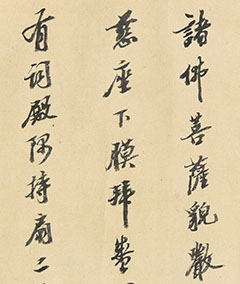 諸佛菩薩貌嚴
慈座下膜拜者
有詞殿隅持扇二